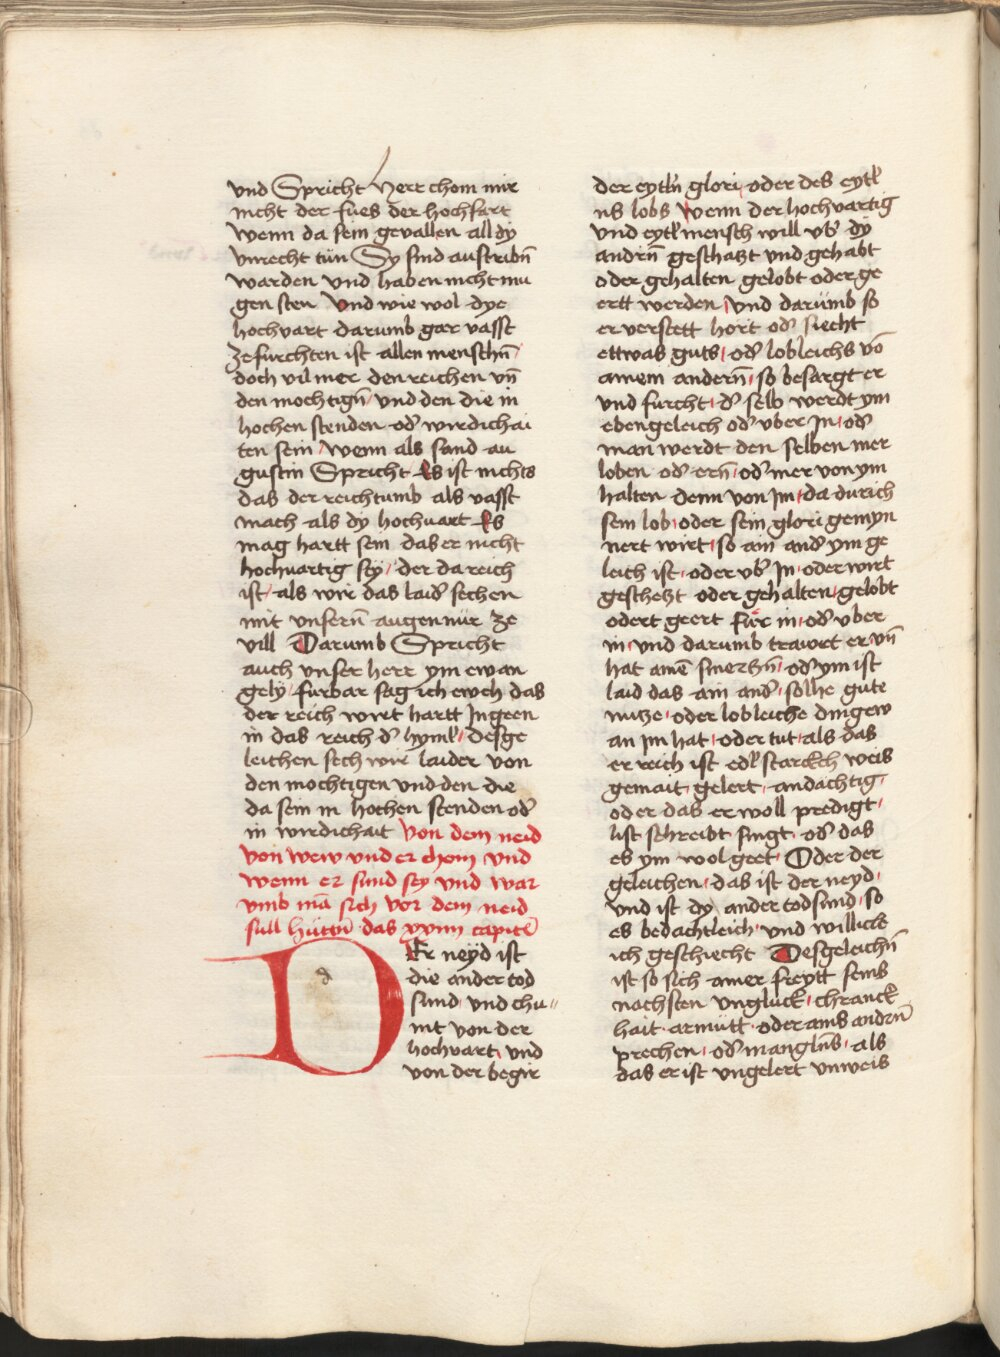 vnd Spricht Herr chom mir
nicht der fues der hochfart
wenn da sein gevallen all dy
vnrecht tün Sy sind austribn̄
warden vnd haben nicht mu
gen sten Vnd wie wol dye
hochuart darumb gar vasst
zefurchten ist allen menschn̄
doch vil mer den reichen vn̄
den mochtign̄ vnd den die in
hochen stenden od̉ wirdichai
ten sein Wenn als sand au
gustin Spricht Es ist nichts
das der reichtumb als vasst
mach als dy hochuart Es
mag hartt sein das er nicht
hochuartig sey der da reich
ist als wir das laid̉ sechen
mit vnsern̄ augen nür ze
vill Darumb Spricht
auch vnser herr ym ewan
gely furbar sag ich ewch das
der reich wirt hartt Ingeen
in das reich d̉ hyml̉ desge
leichen sech wir laider von
den mochtigen vnd den die
da sein in hochen stenden od̉
in wirdichait von dem neid
von wew vnd er chom vnd
wenn er sund sey vnd war
vmb mā sich vor dem neid
sull hütn̄ das xxiiii capitē
d
DEr neyd ist
die ander tod
sünd vnd chu
mt von der
hochvart vnd
von der begir
der eytl̉n glori oder des eytl̉
ns lobs Wenn der hochvartig
vnd eytl̉ mensch will vb̉ dy
andrn̄ geschatzt vnd gehabt
oder gehalten gelobt oder ge
ertt werden Vnd darümb so
er verstett hört od̉ siecht
ettwas guts od̉ lobleichs vō
ainem andern̄ so besargt er
vnd furcht d̉ selb werdt ym
ebengeleich od̉ vber In od̉
man werdt den selben mer
loben od̉ ern̄ od̉ mer von ym
halten denn von Im da durich
sein lob oder sein glori gemyn
nert wirt so ain and̉ ym ge
leich ist oder vb̉ In oder wirt
geschetzt oder gehalten gelobt
odert geert für in od̉ vber
in vnd darumb trawrt er vn̄
hat ainē smerczn̄ od̉ ym ist
laid das ain and̉ solhe gute
nutze oder lobleiche dingew
an Im hat oder tut als das
er reich ist edl̉ starckch weis
gemait gelert andachtig
oder das er woll predigt
list schreibt singt od̉ das
es ym wol geet Oder der
geleichen das ist der neyd
vnd ist dy ander todsünd so
es bedachtleich vnd willick
ich geschiecht Desgeleichn̄
ist so sich ainer freytt seins
nachsten vnglück chranck
hait armütt oder ains andrn̄
prechen od̉ manglu̅s als
das er ist vngelert vnweis